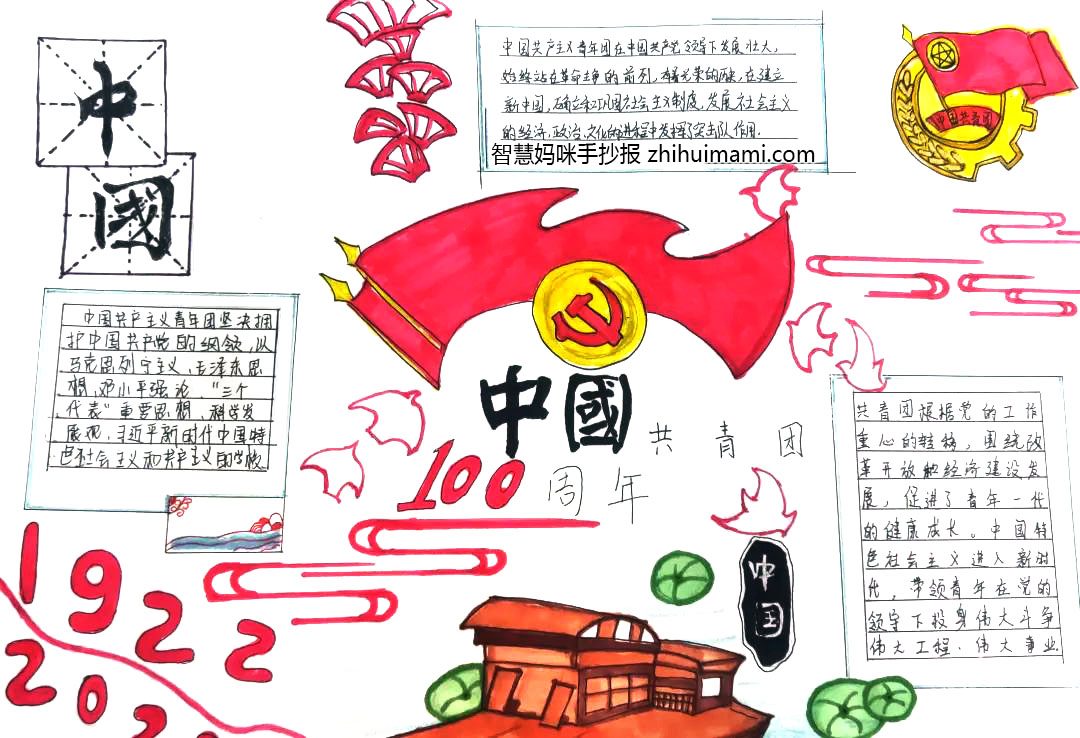 中
國
中国共产主义青年团在中国共产党领导下发展壮大,
始终站在革命斗争的前列,有着光荣的历史,在建立
新中国,确立和巩固社会主义制度,发展社会主义
的经济,政治,文化的进程中发挥了突击队作用.
智慧妈咪手抄报 zhihuimami.com
中国共青团
中國
共青团
100周年
中国共产主义青年团坚决拥
护中国共产党的纲领,以
马克思列宁主义、毛泽东思
想,邓小平论,"三个
代表"重要思想、科学发
展观,习近平新时代中国特
色社会主义和共产主义的学校.
共青团根据党的工作
重心的转移,围绕改
革开放和经济建设发
展,促进了青年一代
的健康成长。中国特
色社会主义进入新时
代,带领青年在党的
领导下投身伟大斗争
伟大工程、伟大事业.
中国
1922
202